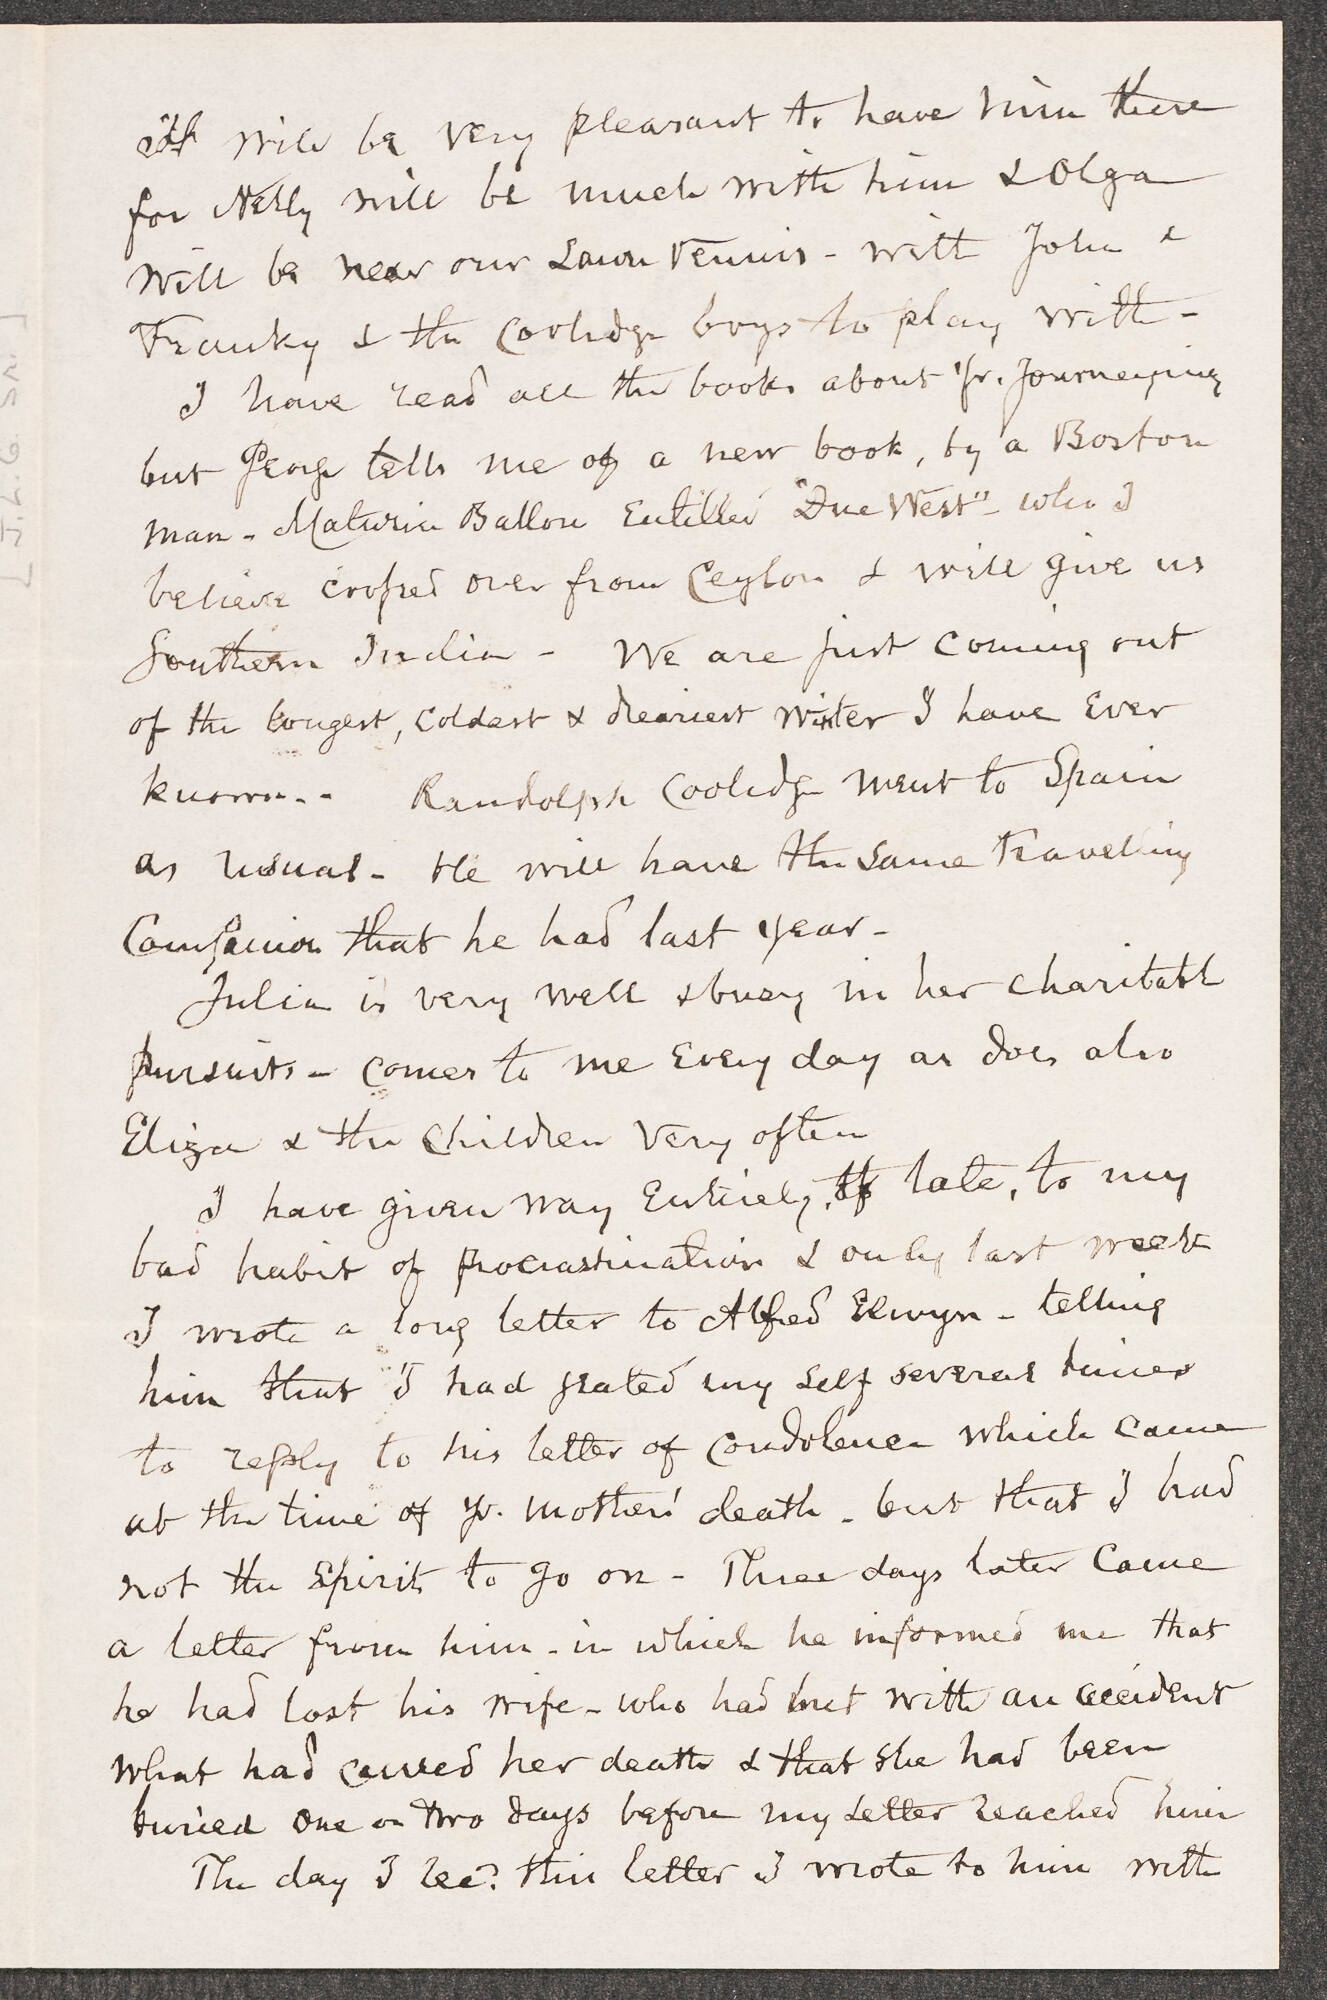 it will be very pleasant to have him there
for Nelly will be much with him & Olga
will be near our Lawn Tennis - with John &
Franky & the Coolidge boys to play with -
I have read all the books about Yr. Journeying
but George tells me of a new book, by a Boston
man - Maturin Ballou Entitled "Due West" - who I
believe crossed over from Ceylon & will give us
Southern India - We are just coming out
of the longest, coldest & dreariest winter I have Ever
known - - Randolph Coolidge went to Spain
as usual - He will have the same Travelling
Companion that he had last year -
Julia is very well & busy in her charitable
pursuits - comes to me Every day as does also
Eliza & the children Very often
I have given way Entirely, of late, to my
bad habit of procrastination & only last week
I wrote a long letter to Alfred Elwyn - telling
him that I had seated my self several times
to reply to his letter of condolence which came
at the time of yr. mothers' death - but that I had
not the spirit to go on - Three days later Came
a letter from him - in which he informed me that
he had lost his wife - who had met with an accident
what had caused her death & that she had been
buried one or two days before my letter reached him
The day I rec? this letter I wrote to him with